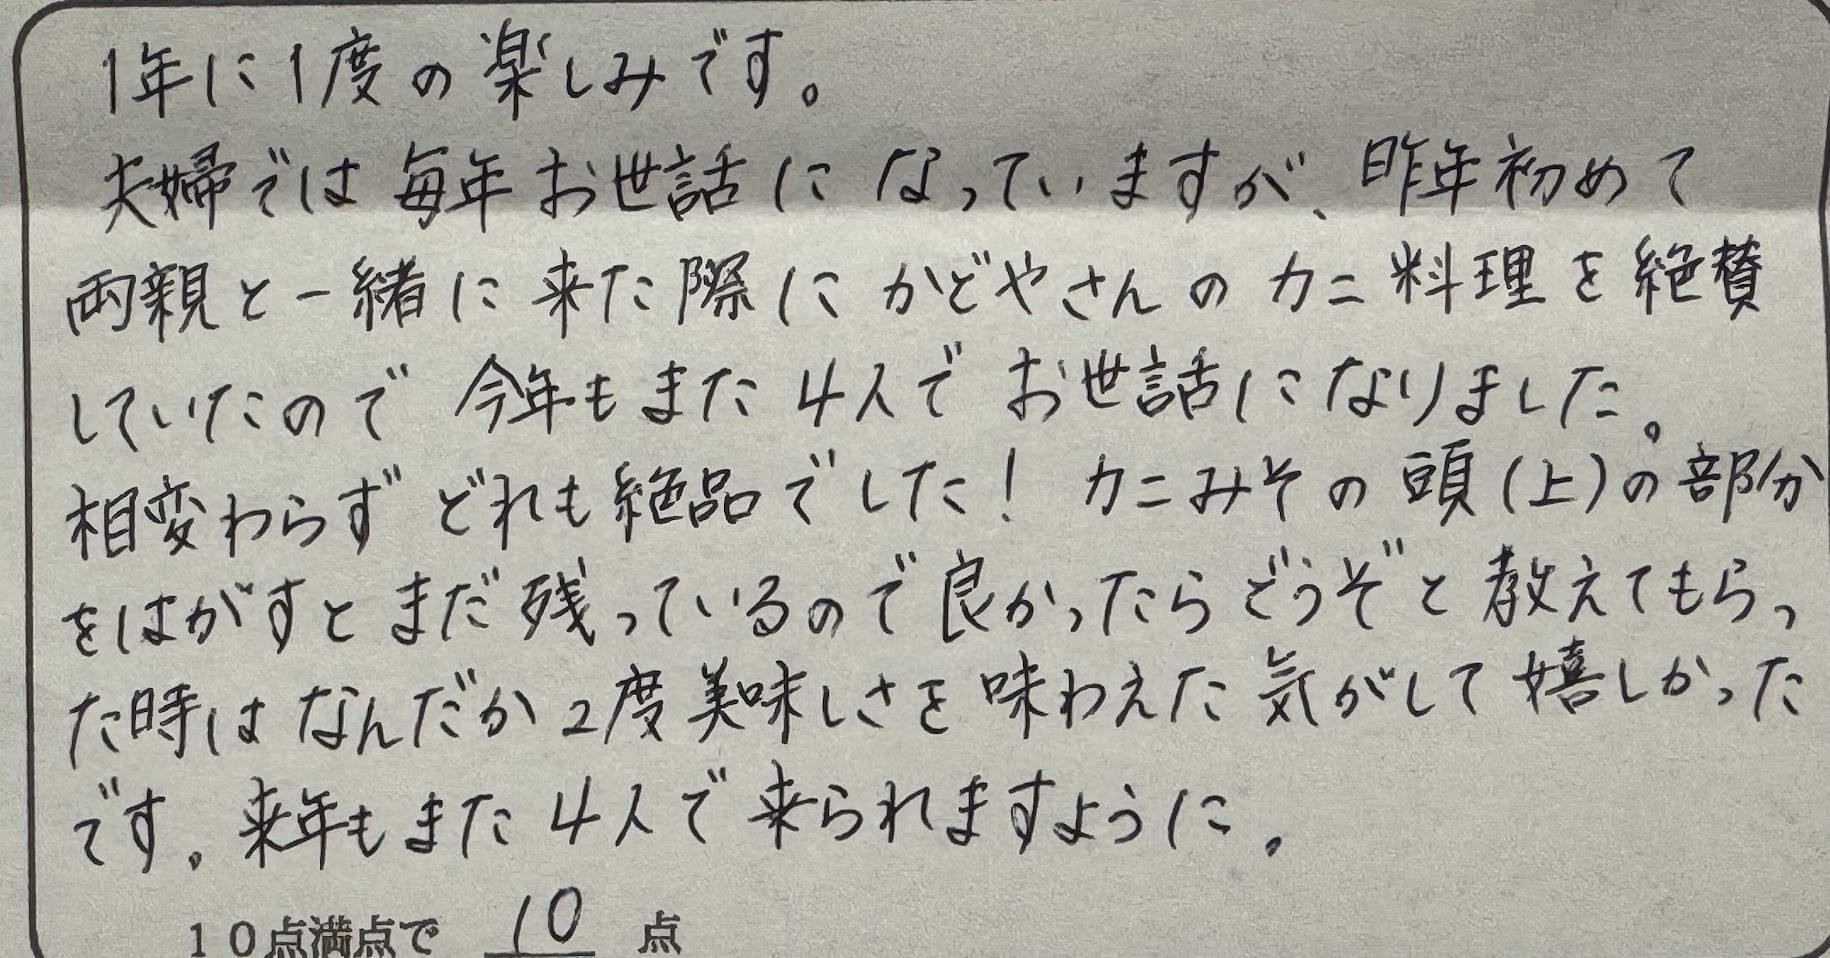 1年に1度の楽しみです。
夫婦では毎年お世話になっていますが、昨年初めて
両親と一緒に来た際にかどやさんのカニ料理を絶賛
していたので今年もまた4人でお世話になりました。
相変わらずどれも絶品でした！カニみその頭(上)の部分
をはがすとまだ残っているので良かったらどうぞと教えてもらっ
た時はなんだか2度美味しさを味わえた気がして嬉しかった
です。来年もまた4人で来られますように。
10点満点で 10 点